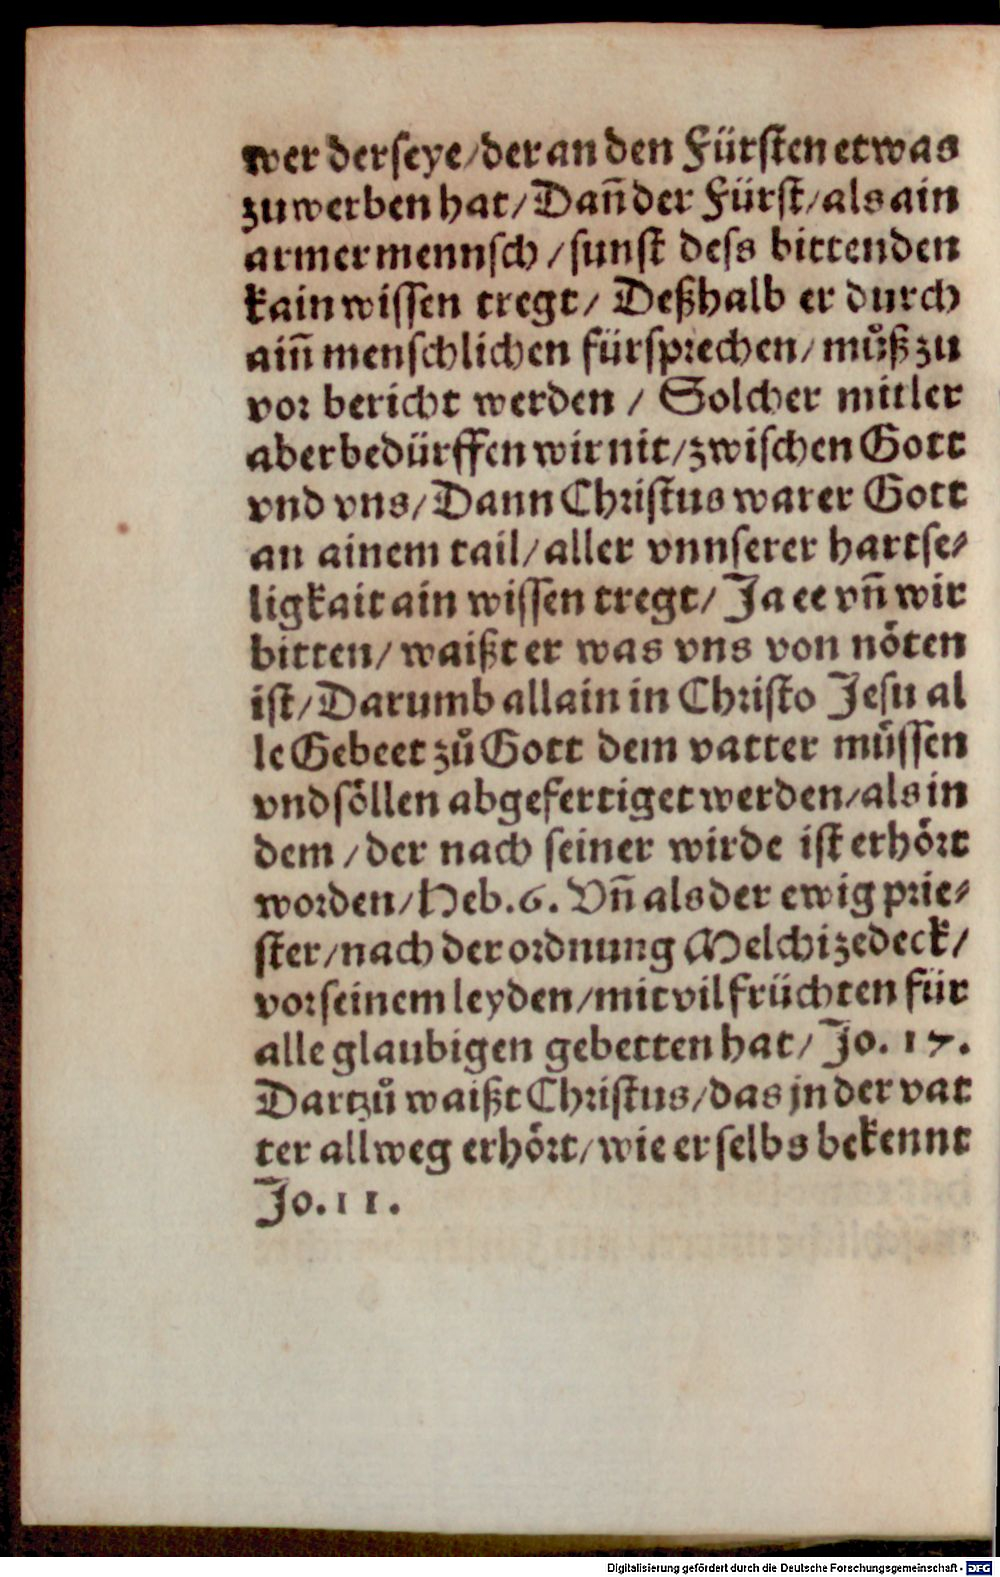 wer der seye / der an den Fürsten etwas
zu werben hat / Dañ der Fürst / als ain
armer mennsch / sunst dess bittenden
kain wissen tregt / Deßhalb er durch
aiñ menschlichen fürsprechen / muͦß zu
vor bericht werden / Solcher mitler
aber bedürffen wir nit / zwischen Gott
vnd vns / Dann Christus warer Gott
an ainem tail / aller vnnserer hartse⸗
ligkait ain wissen tregt / Ja ee vñ wir
bitten / waißt er was vns von nöten
ist / Darumb allain in Christo Jesu al
le Gebeet zuͦ Gott dem vatter müssen
vnd söllen abgefertiget werden / als in
dem / der nach seiner wirde ist erhört
worden / Heb. 6. Vñ als der ewig prie⸗
ster / nach der ordnung Melchizedeck /
vor seinem leyden / mit vil früchten für
alle glaubigen gebetten hat / Jo. 17.
Dartzuͦ waißt Christus / das jn der vat
ter allweg erhört / wie er selbs bekennt
Jo. 11.
Digitalisierung gefördert durch die Deutsche Forschungsgemeinschaft - DFG